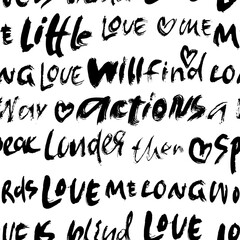 E Little LOVE ♡ ME M
NG LOVE Will find LO
Way ♡ actions a
peak Louder then ♡ SP
RDS LOVE ME LONG WO
VE IS blind LOVE